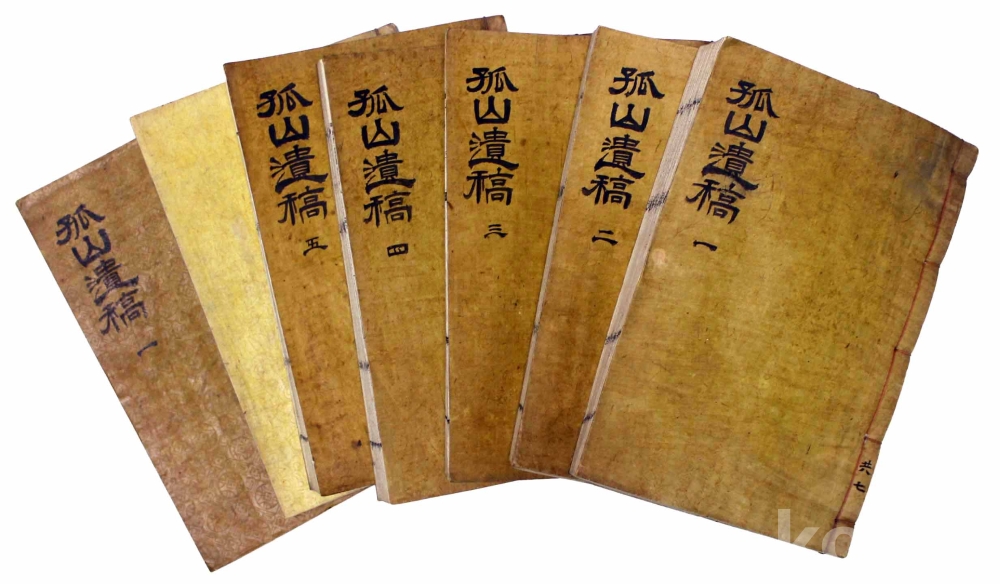 孤山遺稿 一
孤山遺稿 二
孤山遺稿 三
孤山遺稿 四
孤山遺稿 五
孤山遺稿 一
共七